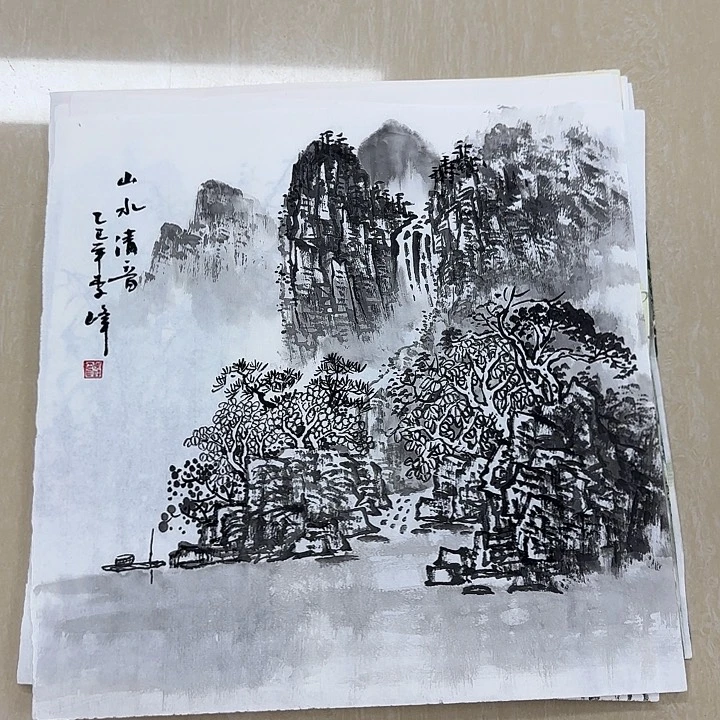 山水清音
乙巳年李峰